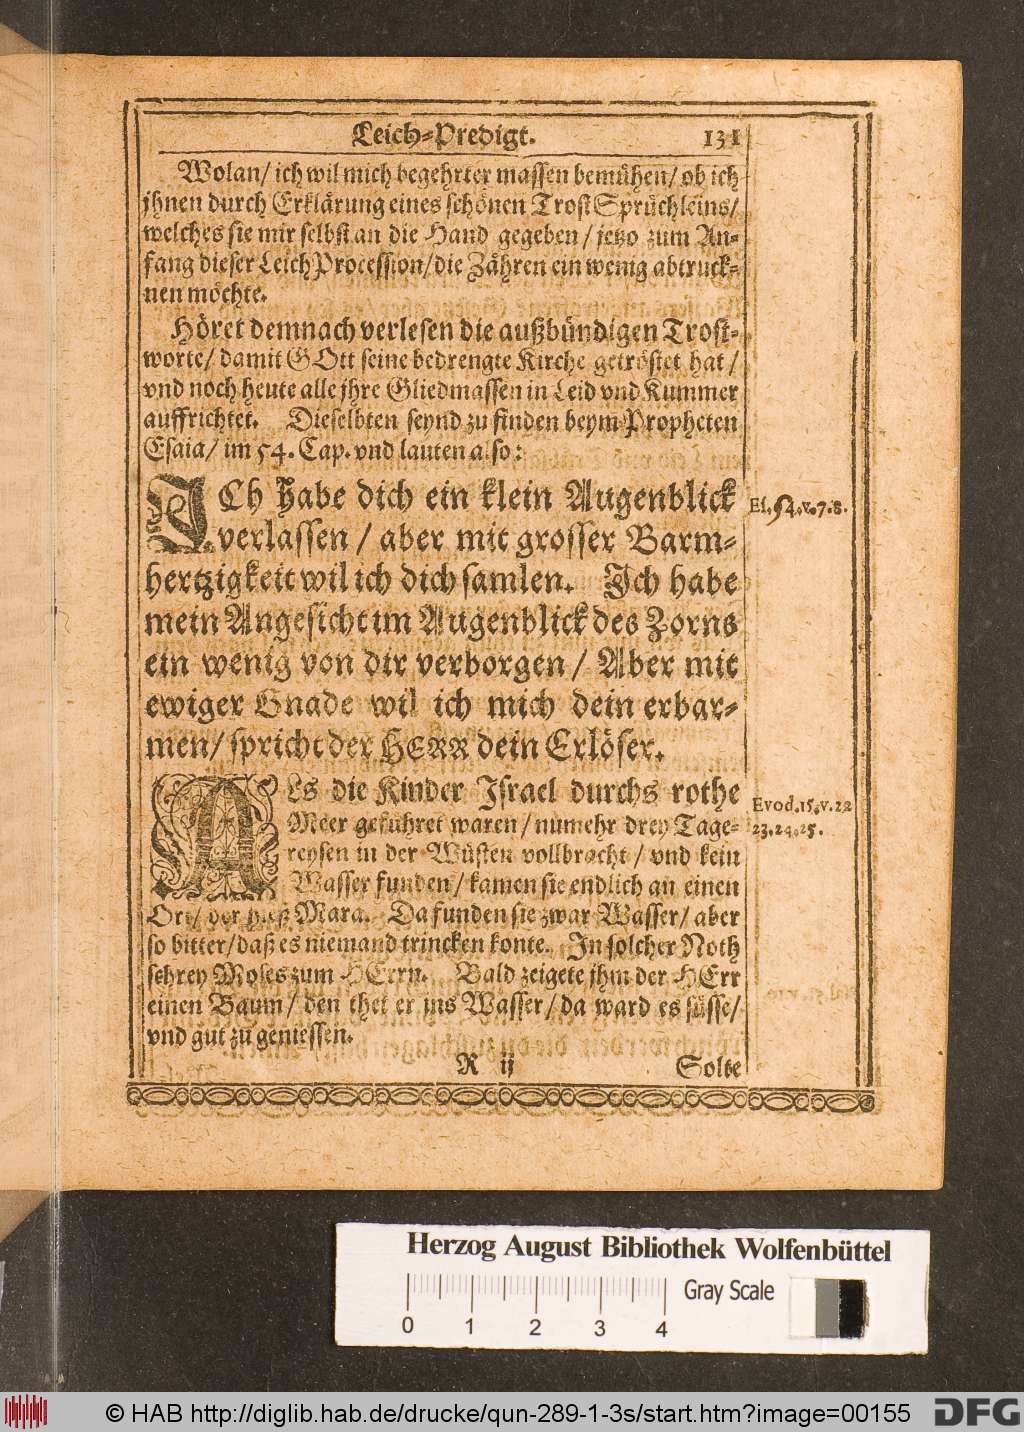 Leich-Predigt. 131
Wolan/ ich wil mich begehrter massen bemühen/ ob ich
jhnen durch Erklärung eines schönen TrostSprüchleins/
welches sie mir selbst an die Hand gegeben/ jetzo zum An-
fang dieser LeichProcession/ die Zähren ein wenig abtruck-
nen möchte.
Höret demnach verlesen die außbündigen Trost-
worte/ damit GOtt seine bedrengte Kirche getröstet hat/
vnd noch heute alle jhre Gliedmassen in Leid vnd Kummer
auffrichtet. Dieselbten seynd zu finden beym Propheten
Esaia/ im 54. Cap. vnd lauten also:
ICh habe dich ein klein Augenblick
verlassen/ aber mit grosser Barm-
hertzigkeit wil ich dich samlen. Ich habe
mein Angesicht im Augenblick des Zorns
ein wenig von dir verborgen/ Aber mit
ewiger Gnade wil ich mich dein erbar-
men/ spricht der HERR dein Erlöser.
Es. 54. v. 7. 8.
ALs die Kinder Israel durchs rothe
Meer geführet waren/ numehr drey Tage-
reysen in der Wüsten vollbracht/ vnd kein
Wasser funden/ kamen sie endlich an einen
Ort/ der hieß Mara. Da funden sie zwar Wasser/ aber
so bitter/ daß es niemand trincken konte. In solcher Noth
schrey Moses zum HErrn. Bald zeigete jhm der HErr
einen Baum/ den thet er ins Wasser/ da ward es süsse/
vnd gut zu geniessen.
Evod. 15. v. 22
23. 24. 25.
R ij Solte
Herzog August Bibliothek Wolfenbüttel
Gray Scale
0 1 2 3 4
© HAB http://diglib.hab.de/drucke/qun-289-1-3s/start.htm?image=00155 DFG